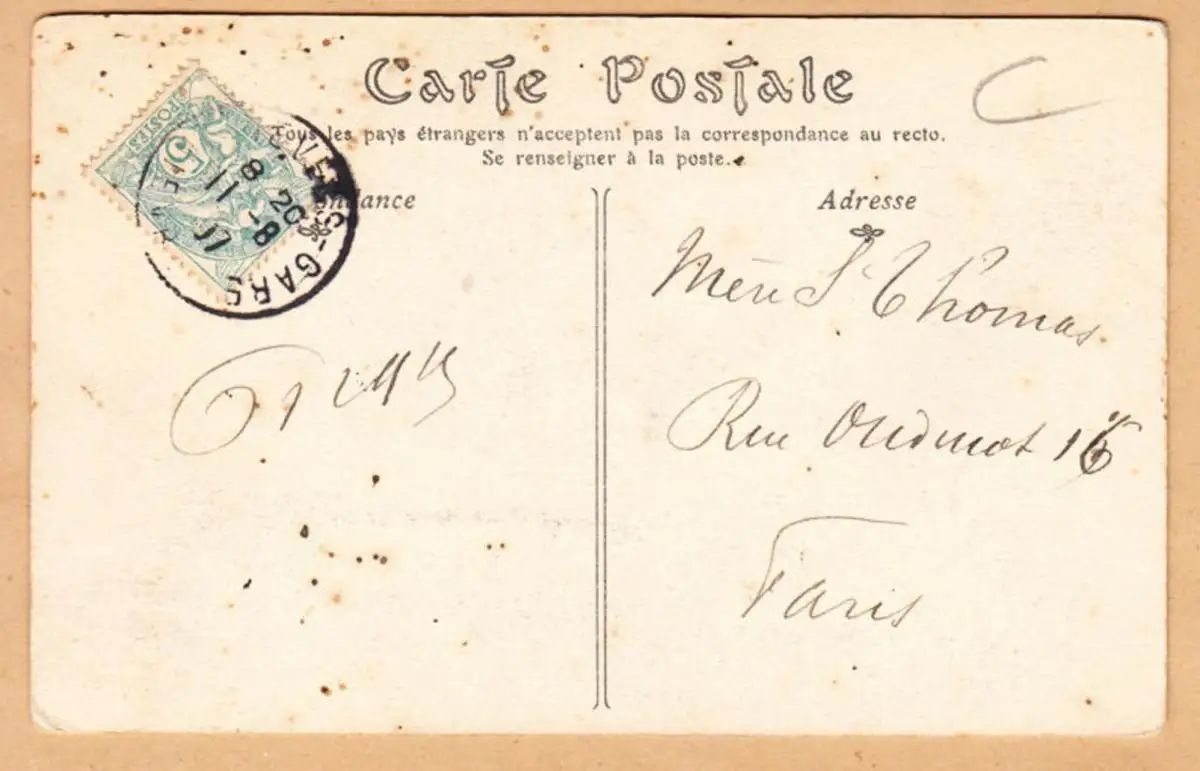 Carte Postale
C
Tous les pays étrangers n'acceptent pas la correspondance au recto.
Se renseigner à la poste.
POSTES
5
8 20
11 -8
07
-GARE
ndance
Adresse
Mère St Thomas
Rue Oudinot 16
Paris